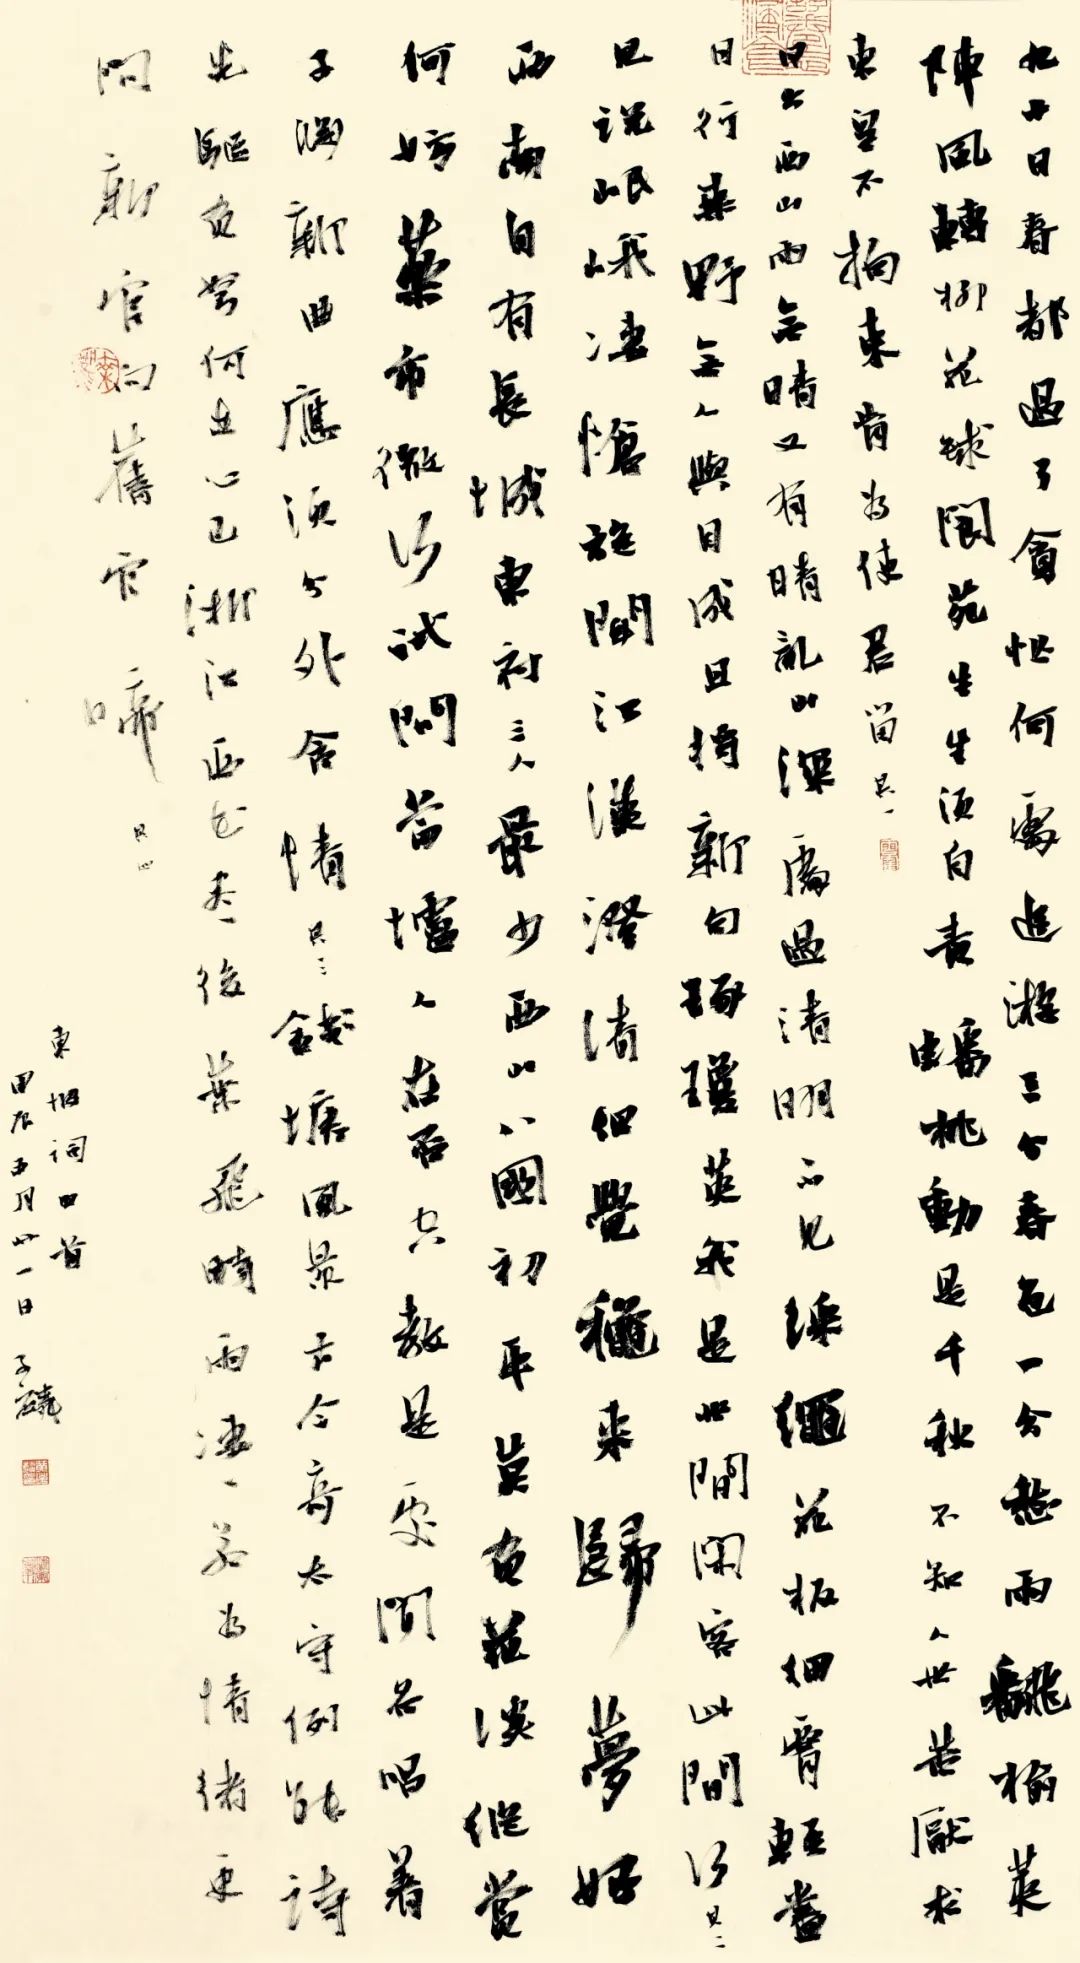 九十日春都過了貪忙何處追遊三分春色一分愁雨翻榆莢
陣風轉柳花球閬苑先生須自責蟠桃動是千秋不知人世苦厭求
東皇不拘束肯為使君留 其一
日出西山雨無晴又有晴亂山深處過清明不見綵繩花板細腰輕盡
日行桑野無人與目成且將新句琢瓊英我是世間閒客此間行 其二
見說岷峨悽愴旋聞江漢澄清但覺秋來歸夢好
西南自有長城東府三人最少西山八國初平莫負花溪縱賞
何妨藥市微行試問當壚人在否空教是處聞名唱著
子淵新曲應須分外含情 其三 錢塘風景古今奇太守例能詩
先驅負弩何在心已浙江西花盡後葉飛時雨淒淒若為情緒更
問新官向舊官啼 其四
東坡詞四首
甲辰五月廿一日 子